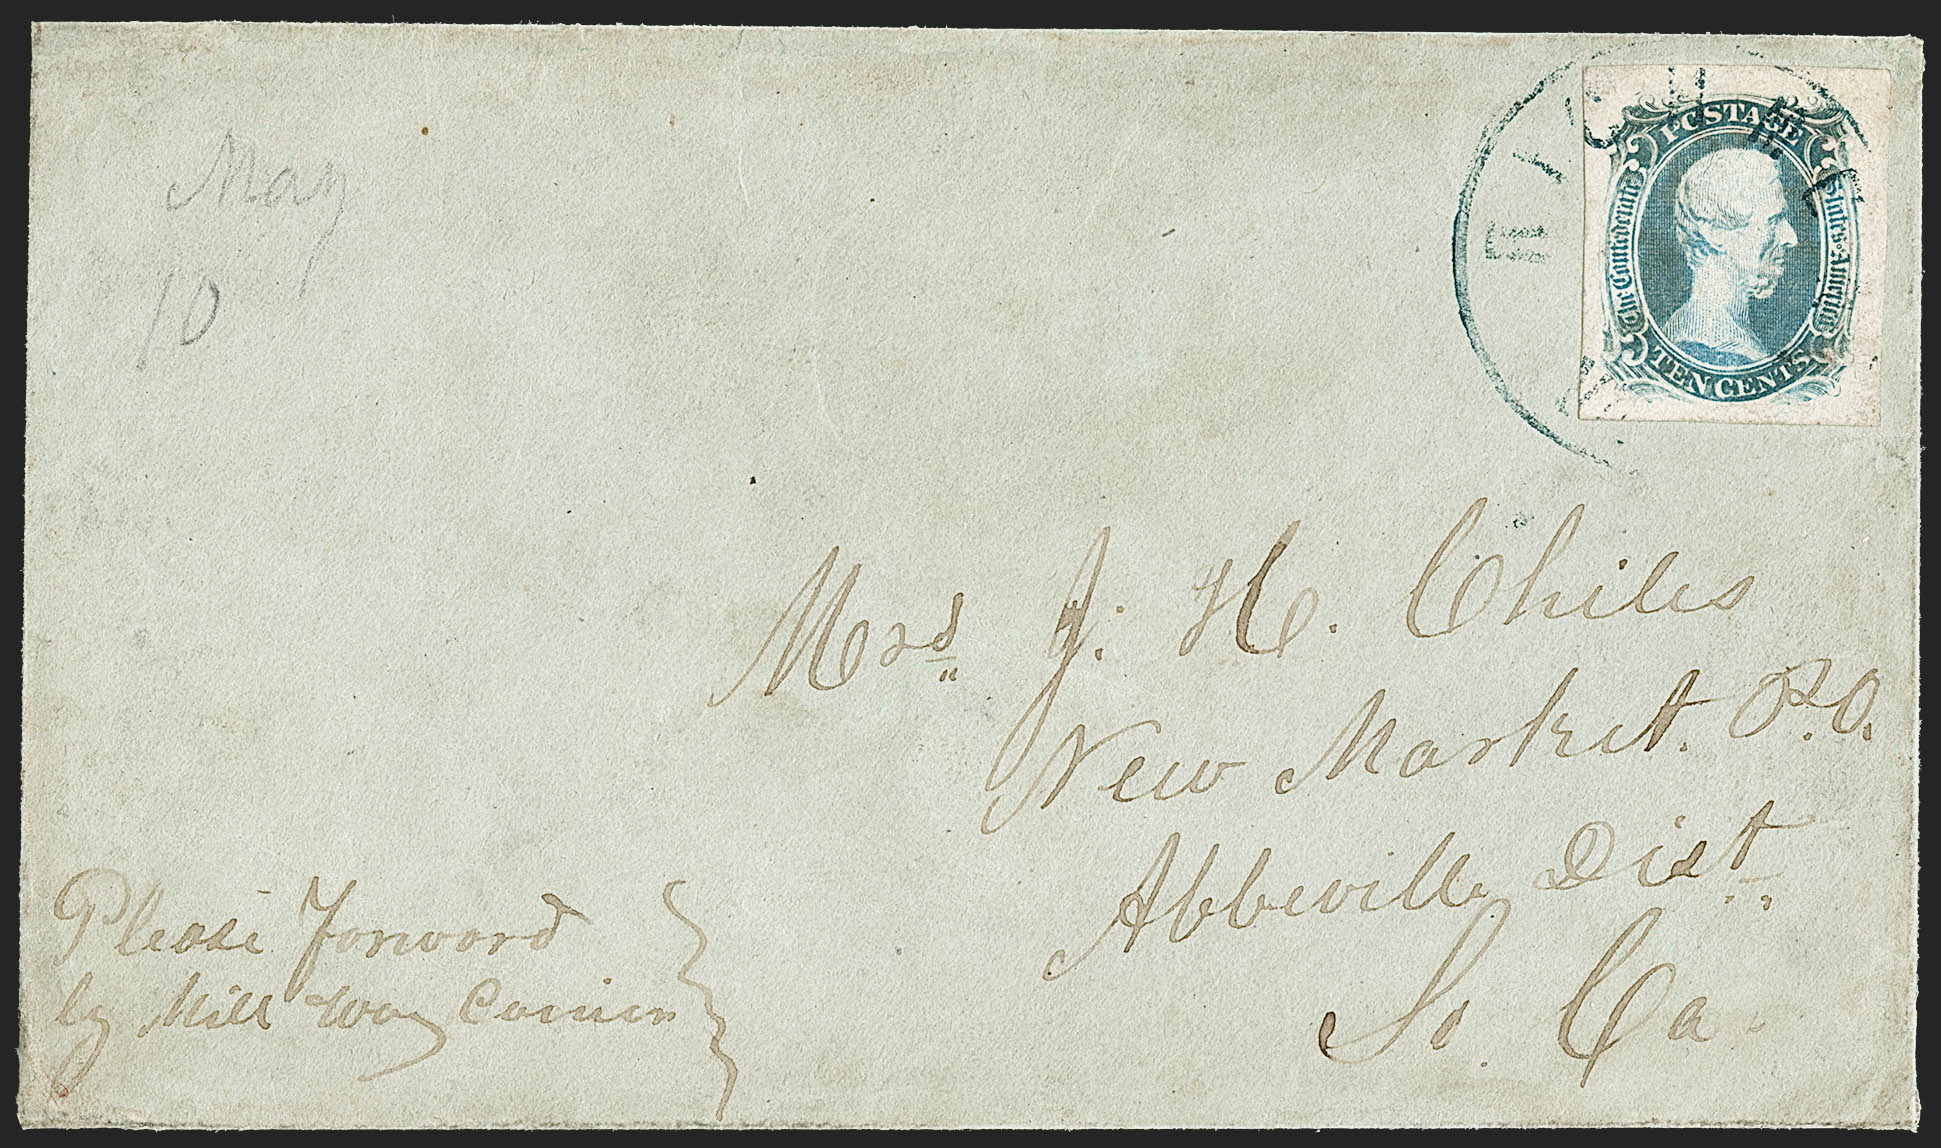 May
10
RICHM
POSTAGE
The Confederate States of America
TEN CENTS
Mrs. J. H. Chiles
New Market. P.O.
Abbeville Dist.
So. Ca.
Please Forward
by Mill Way Carrier